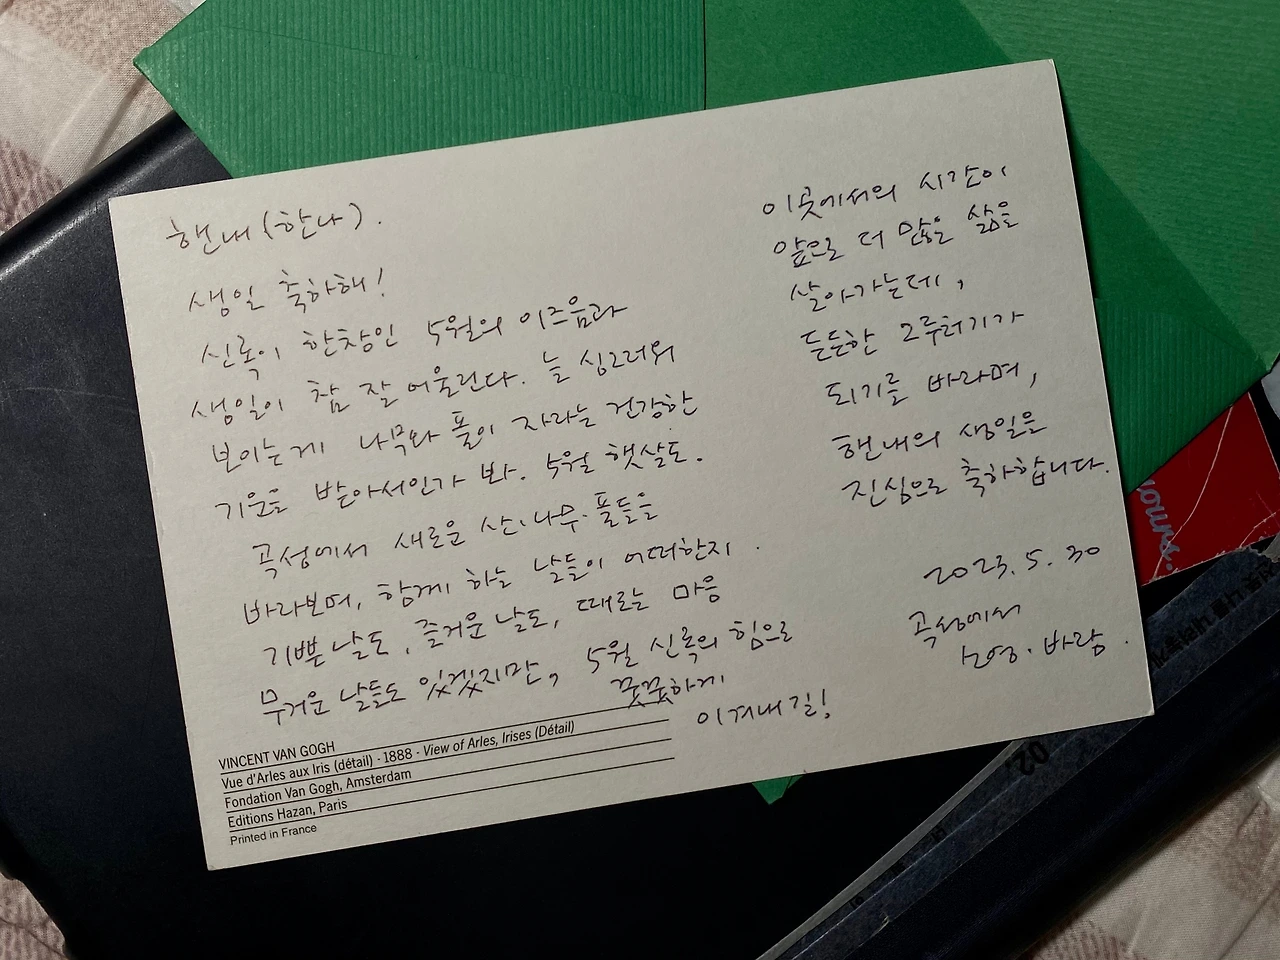 핸내(한나).
생일 축하해!
신록이 한창인 5월의 이즈음과
생일이 참 잘 어울린다. 늘 싱그러워
보이는게 나무와 풀이 자라는 건강한
기운을 받아서인가 봐. 5월 햇살도.
곡성에서 새로운 산·나무·풀들을
바라보며, 함께 하는 날들이 어떠한지.
기쁜 날도, 즐거운 날도, 때로는 마음
무거운 날들도 있겠지만, 5월 신록의 힘으로
꿋꿋하게
이겨내길!
이곳에서의 시간이
앞으로 더 많은 삶을
살아가는데,
든든한 그루터기가
되기를 바라며,
핸내의 생일을
진심으로 축하합니다.
2023. 5. 30
곡성에서
소영·바람.
VINCENT VAN GOGH
Vue d'Arles aux Iris (détail) - 1888 - View of Arles, Irises (Détail)
Fondation Van Gogh, Amsterdam
Editions Hazan, Paris
Printed in France
ours.
02.